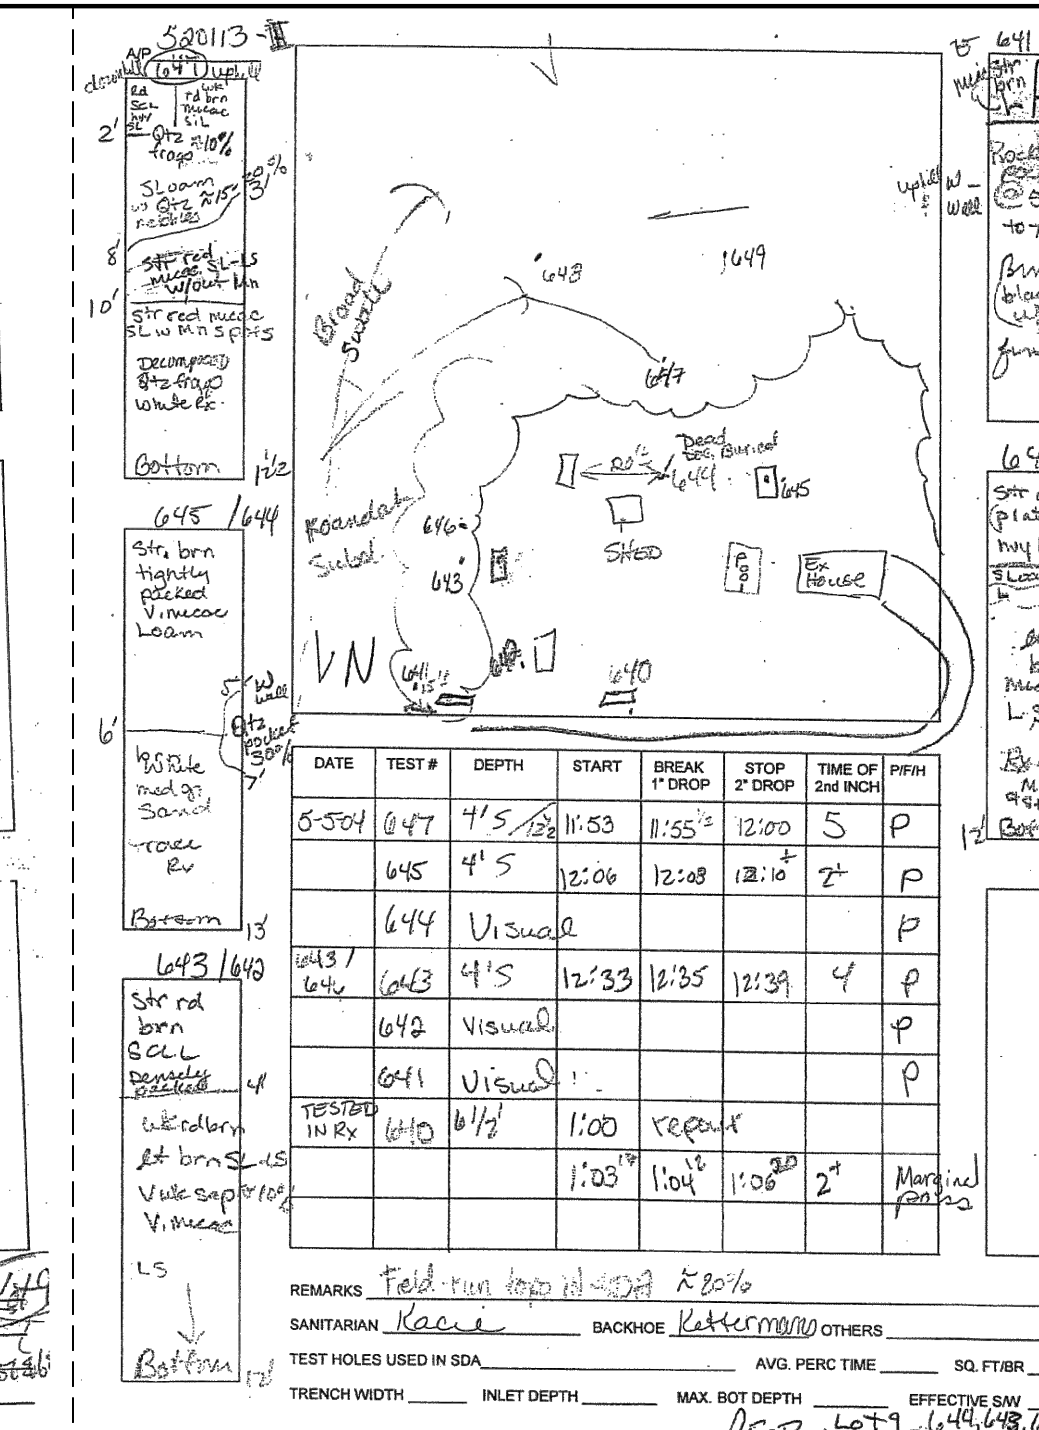 520113-II
A/P
647 uphill
Rd
SCL
hvy
SL
wk
rd brn
micac
SiL
2'
Qtz
frags ≈10%
SLoam
w Qtz ≈15-20%
3'
8'
Str red
micac SL-LS
w/out Mn
10'
Str red micac
SL w Mn spots
Decomposed
Qtz frags
White Rx
Bottom 12 1/2
645 /644
Str. brn
tightly
packed
V. micac
Loam
5' W
wall
Qtz
pocket
30%
7'
6'
White
med gr
Sand
trace
Rx
Bottom 13'
643 /642
Str rd
brn
SCLL
Densely
packed 4'
wk rd brn
lt brn SL-LS
V wk sap 10%
V. micac
LS
Bottom 12'
Broad
Swale
648
649
uphill
647
20'±
Dead
Dog Buried
644
645
SHED
646
643
POOL
Ex
House
N
641
15'±
640
5 641
W-
Wall
Str
brn
to
12'
DATE TEST # DEPTH START BREAK 1" DROP STOP 2" DROP TIME OF 2nd INCH P/F/H
5-5-04 647 4'S /12 1/2 11:53 11:55 1/2 12:00 5 P
645 4'S 12:06 12:08 12:10+ 2+ P
644 Visual P
643/ 646 643 4'S 12:33 12:35 12:39 4 P
642 Visual P
641 Visual P
TESTED IN Rx 640 6 1/2' 1:00 repeat
1:03 17 1:04 12 1:06 20 2+ Marginal pass
REMARKS Field-run topo in SDA ≈20%
SANITARIAN Kacie BACKHOE Ketterman OTHERS
TEST HOLES USED IN SDA AVG. PERC TIME SQ. FT/BR
TRENCH WIDTH INLET DEPTH MAX. BOT DEPTH EFFECTIVE S/W
Lot 9 644, 643,